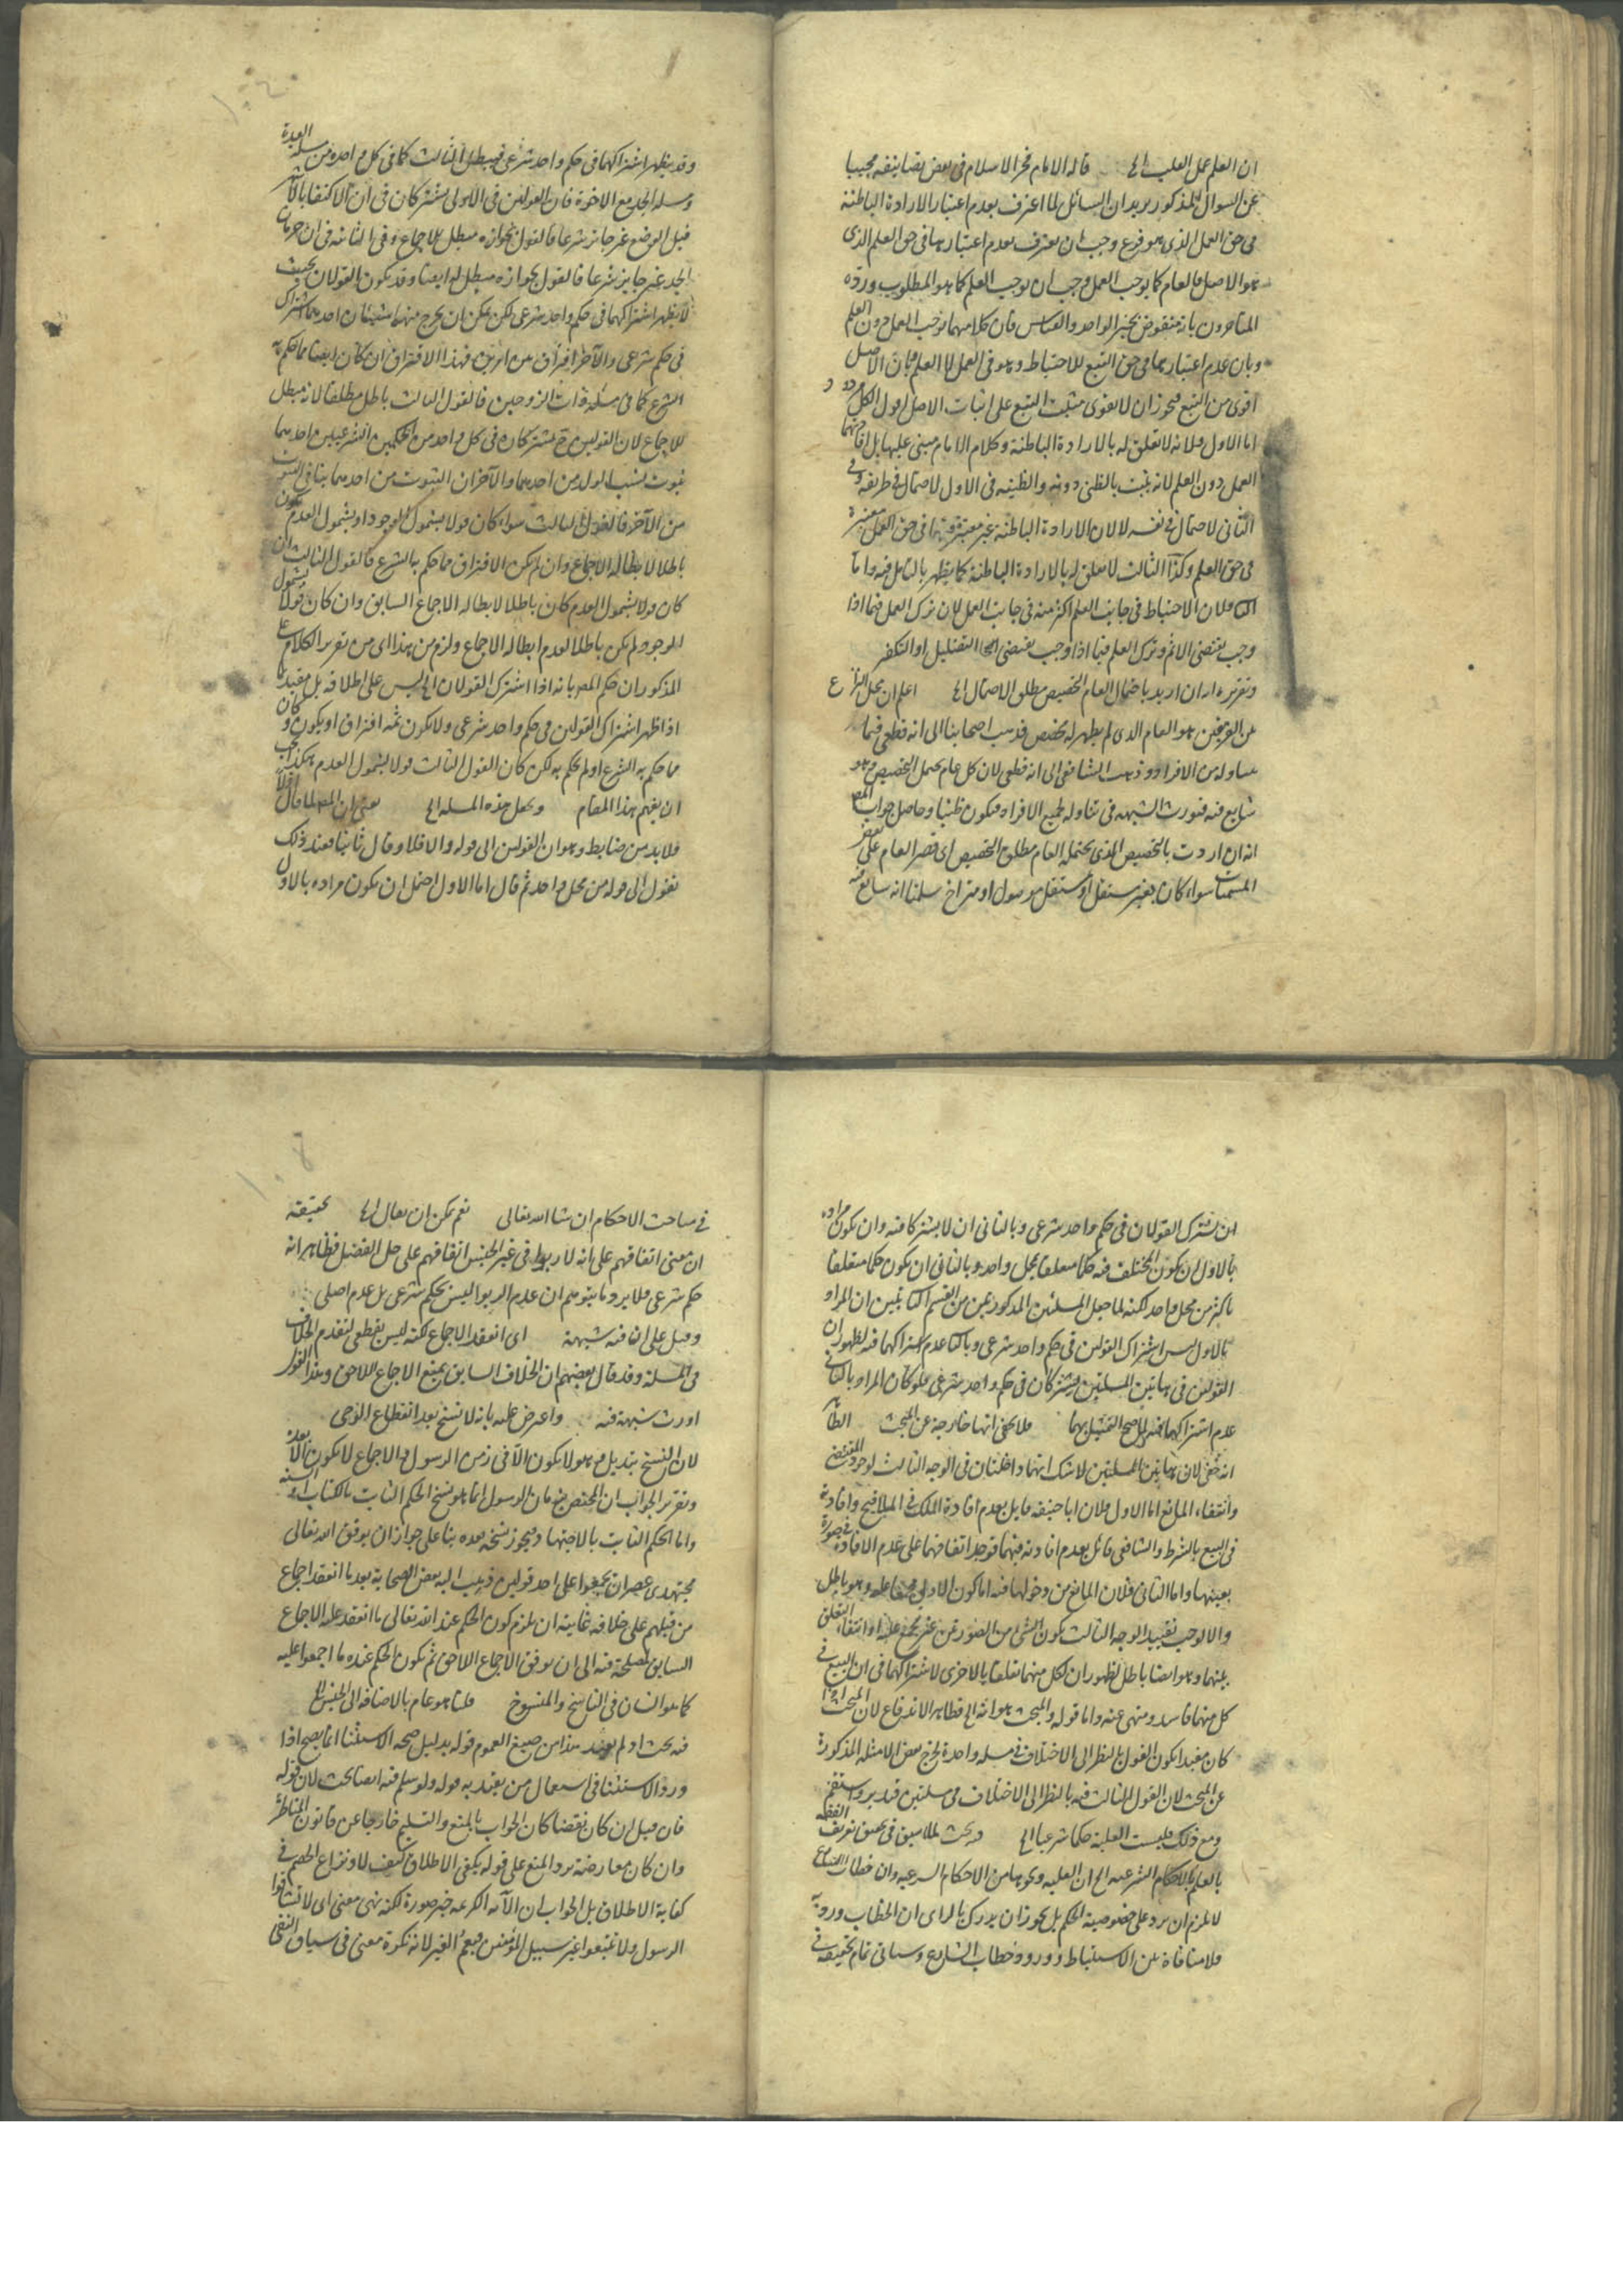 ان العلم عمل القلب الخ قاله الامام فخر الاسلام في بعض تصانيفه مجيبا
عن السوال المذكور يريد ان السائل لما اعترف بعدم اعتبار الارادة الباطنة
في حق العمل الذى هو فرع وجب ان يعترف بعدم اعتبارها في حق العلم الذى
هو الاصل فالعام كما يوجب العمل وجب ان يوجب العلم كما هو المطلوب ورده
المتاخرون بانه منقوض بخبر الواحد والقياس فان كلا منهما يوجب العمل دون العلم
وبان عدم اعتبارها في حق التبع للاحتياط وهو في العمل لا العلم وبان الاصل
اقوى من التبع فيجوز ان لا يقوى مثبت التبع على اثبات الاصل اقول الكل مردود
اما الاول فلانه لا تعلق له بالارادة الباطنة وكلام الامام مبنى عليها بل
العمل دون العلم لانه يثبت بالظن دونه والظنية في الاول لاحتمال في طريقه وفي
الثاني لاحتمال في نفسه لا لان الارادة الباطنة غير معتبرة في حق العمل معتبرة
في حق العلم وكذا الثالث لا تعلق له بالارادة الباطنة كما يظهر بالتامل فيه واما
الثاني فلان الاحتياط في جانب العلم اكثر منه في جانب العمل لان ترك العمل فيما اذا
وجب يقتضى الاثم وترك العلم فيما اذا وجب يقتضى التضليل او التكفير
وتقريره انه ان اريد باحتمال العام التخصيص مطلق الاحتمال الخ اعلم ان محل النزاع
بين الفريقين هو العام الذى لم يظهر له مخصص فذهب اصحابنا الى انه قطعى فيما
تناوله من الافراد وذهب الشافعى الى انه ظنى لان كل عام يحتمل التخصيص وهو
شايع فيه فيورث الشبهة في تناوله لجميع الافراد فيكون ظنيا وحاصل جواب المص
انه ان اردت بالتخصيص الذى يحتمله العام مطلق التخصيص اى قصر العام على بعض
المسميات سواء كان بغير مستقل او مستقل موصول او متراخ سلمنا انه شايع فيه
وقد يظهر اشتراكهما في حكم واحد شرعى فيبطل الثالث كما في كل واحد من مسئلة العدة
ومسئلة الجد مع الاخوة فان القولين في الاولى مشتركان في ان الاكتفا بالاشهر
قبل الوضع غير جائز شرعا فالقول بجوازه مبطل للاجماع وفي الثانية في ان حرمان
الجد غير جايز شرعا فالقول بجوازه مبطل له ايضا وقد يكون القولان بحيث
لا يظهر اشتراكهما في حكم واحد شرعى لكن يمكن ان يخرج منهما شيئان احدهما اشتراك
في حكم شرعى والآخر افتراق بين امرين فهذا الافتراق ان كان ايضا مما حكم به
الشرع كما في مسئلة ذات الزوجين فالقول الثالث باطل مطلقا لانه مبطل
للاجماع لان القولين ح مشتركان في كل واحد من الحكمين الشرعيين احدهما
ثبوت نسب الولد من احدهما والآخر ان الثبوت من احدهما ينافي الثبوت
من الآخر فالقول الثالث سواء كان قولا بشمول الوجود او بشمول العدم يكون
باطلا لابطاله الاجماع وان لم يكن الافتراق مما حكم به الشرع فالقول الثالث ان
كان قولا بشمول العدم كان باطلا لابطاله الاجماع السابق وان كان قولا بشمول
الوجود لم يكن باطلا لعدم ابطاله الاجماع ولزم من هذا اى من تقرير الكلام على
المذكور ان حكم المص بانه اذا اشترك القولان الخ ليس على اطلاقه بل مقيد بما
اذا ظهر اشتراك القولين في حكم واحد شرعى ولا يكون ثمه افتراق او يكون وكان
مما حكم به الشرع او لم يحكم به لكن كان القول الثالث قولا بشمول العدم هكذا يجب
ان يفهم هذا المقام وتجعل هذه المسئلة الخ يعنى ان المص لما قال اولا
فلا بد من ضابط وهو ان القولين الى قوله والا فلا وقال ثانيا فعند ذلك
نقول الى قوله من محل واحد ثم قال اما الاول احتمل ان يكون مراده بالاول
ان يشترك القولان في حكم واحد شرعى وبالثانى ان لا يشتركا فيه وان يكون مراده
بالاول ان يكون المختلف فيه حكما متعلقا بمحل واحد وبالثانى ان يكون حكما متعلقا
باكثر من محل واحد لكنه لما جعل المسئلتين المذكورتين من القسم الثانى تبين ان المراد
بالاول ليس اشتراك القولين في حكم واحد شرعى وبالثانى عدم اشتراكهما فيه لظهور ان
القولين في هاتين المسئلتين يشتركان في حكم واحد شرعى فلو كان المراد بالثانى
عدم اشتراكهما فيه لما صح التمثيل بهما فلا يخفى انها خارجة عن المبحث الظاهر
انه خفى لان هاتين المسئلتين لا شك انهما داخلتان في الوجه الثالث لوجود المقتضى
وانتفاء المانع اما الاول فلان ابا حنيفه قايل بعدم افادة الملك في الملاقيح وافادته
في البيع بالشرط والشافعى قائل بعدم افادته فيهما فوجد اتفاقهما على عدم الافادة في صورة
بعينها واما الثانى فلان المانع من دخولها فيه اما كون الاولى مجمعا عليه وهو باطل
والا لوجب تقييد الوجه الثالث بكون الشئ من الصورتين غير مجمع عليه او انتفاء التعلق
بينهما وهو ايضا باطل لظهور ان لكل منهما تعلقا بالاخرى لاشتراكهما في ان البيع في
كل منهما فاسد ومنهى عنه واما قوله والمبحث هو انه الخ فظاهر الاندفاع لان المبحث اذا
كان مقيدا بكون القول بالنظر الى الاختلاف في مسئلة واحدة يخرج بعض الامثلة المذكورة
عن المبحث لان القول الثالث فيه بالنظر الى الاختلاف في مسئلتين فتدبر واستقم
ومع ذلك فليست العلية حكما شرعيا الخ فيه بحث لما سبق في تحقيق تعريف الفقه
بالعلم بالاحكام الشرعية الخ ان العلية ونحوها من الاحكام الشرعية وان خطاب الشارع
لا يلزم ان يرد على خصوصية الحكم بل يجوز ان يدرك بالراى ان الخطاب ورد به
فلا منافاة بين الاستنباط وورود خطاب الشارع وسياتى تمام تحقيقه في
في مباحث الاحكام ان شا الله تعالى نعم يمكن ان يقال الخ تحقيقه
ان معنى اتفاقهم على انه لا ربوا في غير الجنس اتفاقهم على حل الفضل فظاهر انه
حكم شرعى فلا يرد ما يتوهم ان عدم الربوا ليس بحكم شرعى بل عدم اصلى
وقيل على ان فيه شبهة اى انعقد الاجماع لكنه ليس بقطعى لتقدم الخلاف
في المسئلة وقد قال بعضهم ان الخلاف السابق يمنع الاجماع اللاحق وهذا القول
اورث شبهة فيه واعترض عليه بانه لا نسخ بعد انقطاع الوحى
لان النسخ تبديل وهو لا يكون الا في زمن الرسول والاجماع لا يكون الا بعده
وتقرير الجواب ان المختص بزمان الرسول انما هو نسخ الحكم الثابت بالكتاب والسنة
واما الحكم الثابت بالاجتهاد فيجوز نسخه بعده بنا على جواز ان يوفق الله تعالى
مجتهدى عصر ان يجمعوا على احد قولين ذهب اليه بعض الصحابة بعد ما انعقد اجماع
من قبلهم على خلافه غايته ان يلزم كون الحكم عند الله تعالى ما انعقد عليه الاجماع
السابق لمصلحة فيه الى ان يوفق الاجماع اللاحق ثم يكون الحكم عنده ما اجمعوا عليه
كما هو الشان في الناسخ والمنسوخ قلنا هو عام بالاضافة الى الجنس الخ
فيه بحث اذ لم يعهد هذا من صيغ العموم قوله بدليل صحه الاستثنا انما يصح اذا
ورد الاستثنا في استعمال من يعتد به قوله ولو سلم فيه ايضا بحث لان قوله
فان قيل ان كان نقضا كان الجواب بالمنع والتسليم خارجا عن قانون المناظرة
وان كان معارضة يرد المنع على قوله يكفى الاطلاق كيف لا ونزاع الخصم في
كفاية الاطلاق بل الجواب ان الآية الكريمة خبر صورة لكنه نهى معنى اى لا تشاقوا
الرسول ولا تتبعوا غير سبيل المؤمنين فيعم الغير لانه نكرة معنى في سياق النفى